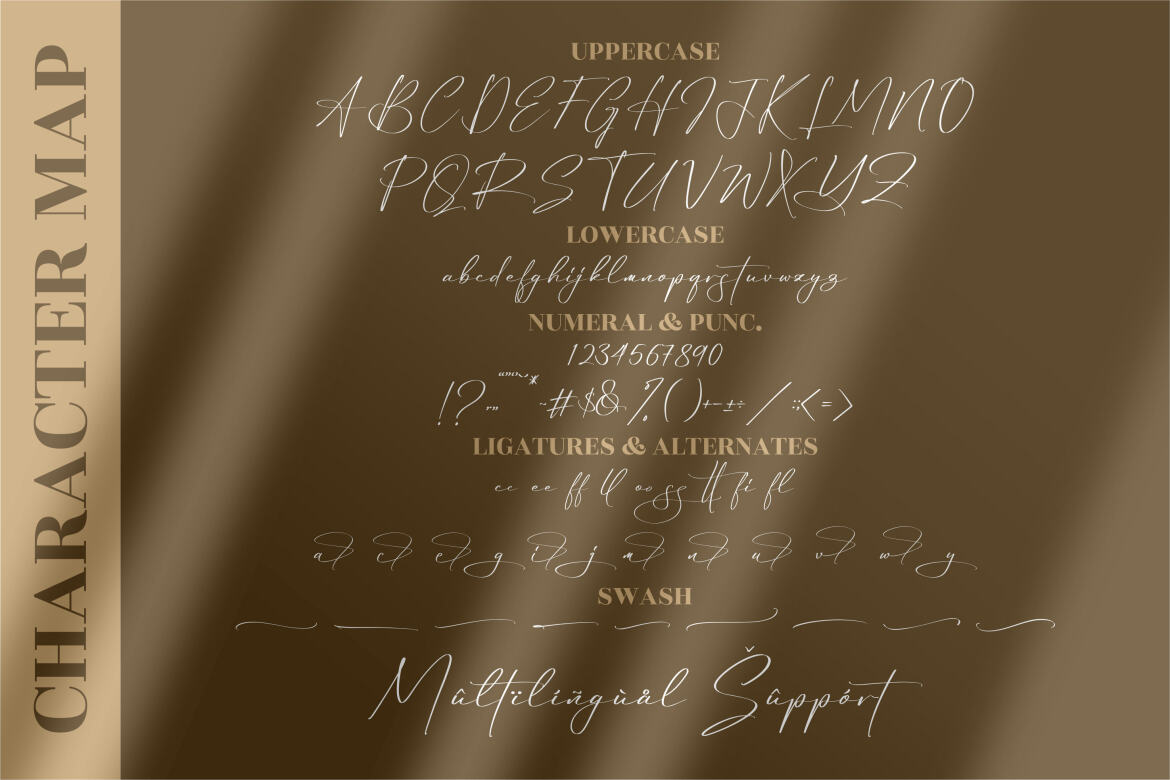 CHARACTER MAP
UPPERCASE
ABCDEFGHIJKLMNO
PQRSTUVWXYZ
LOWERCASE
abcdefghijklmnopqrstuvwxyz
NUMERAL & PUNC.
1234567890
!? ~#$&%()+-±÷/:;<=>
LIGATURES & ALTERNATES
cc ee ff ll oo ss tt fi fl
a c e g i j m n u v w y
SWASH
Mûltïlíñgùål Šûppórt